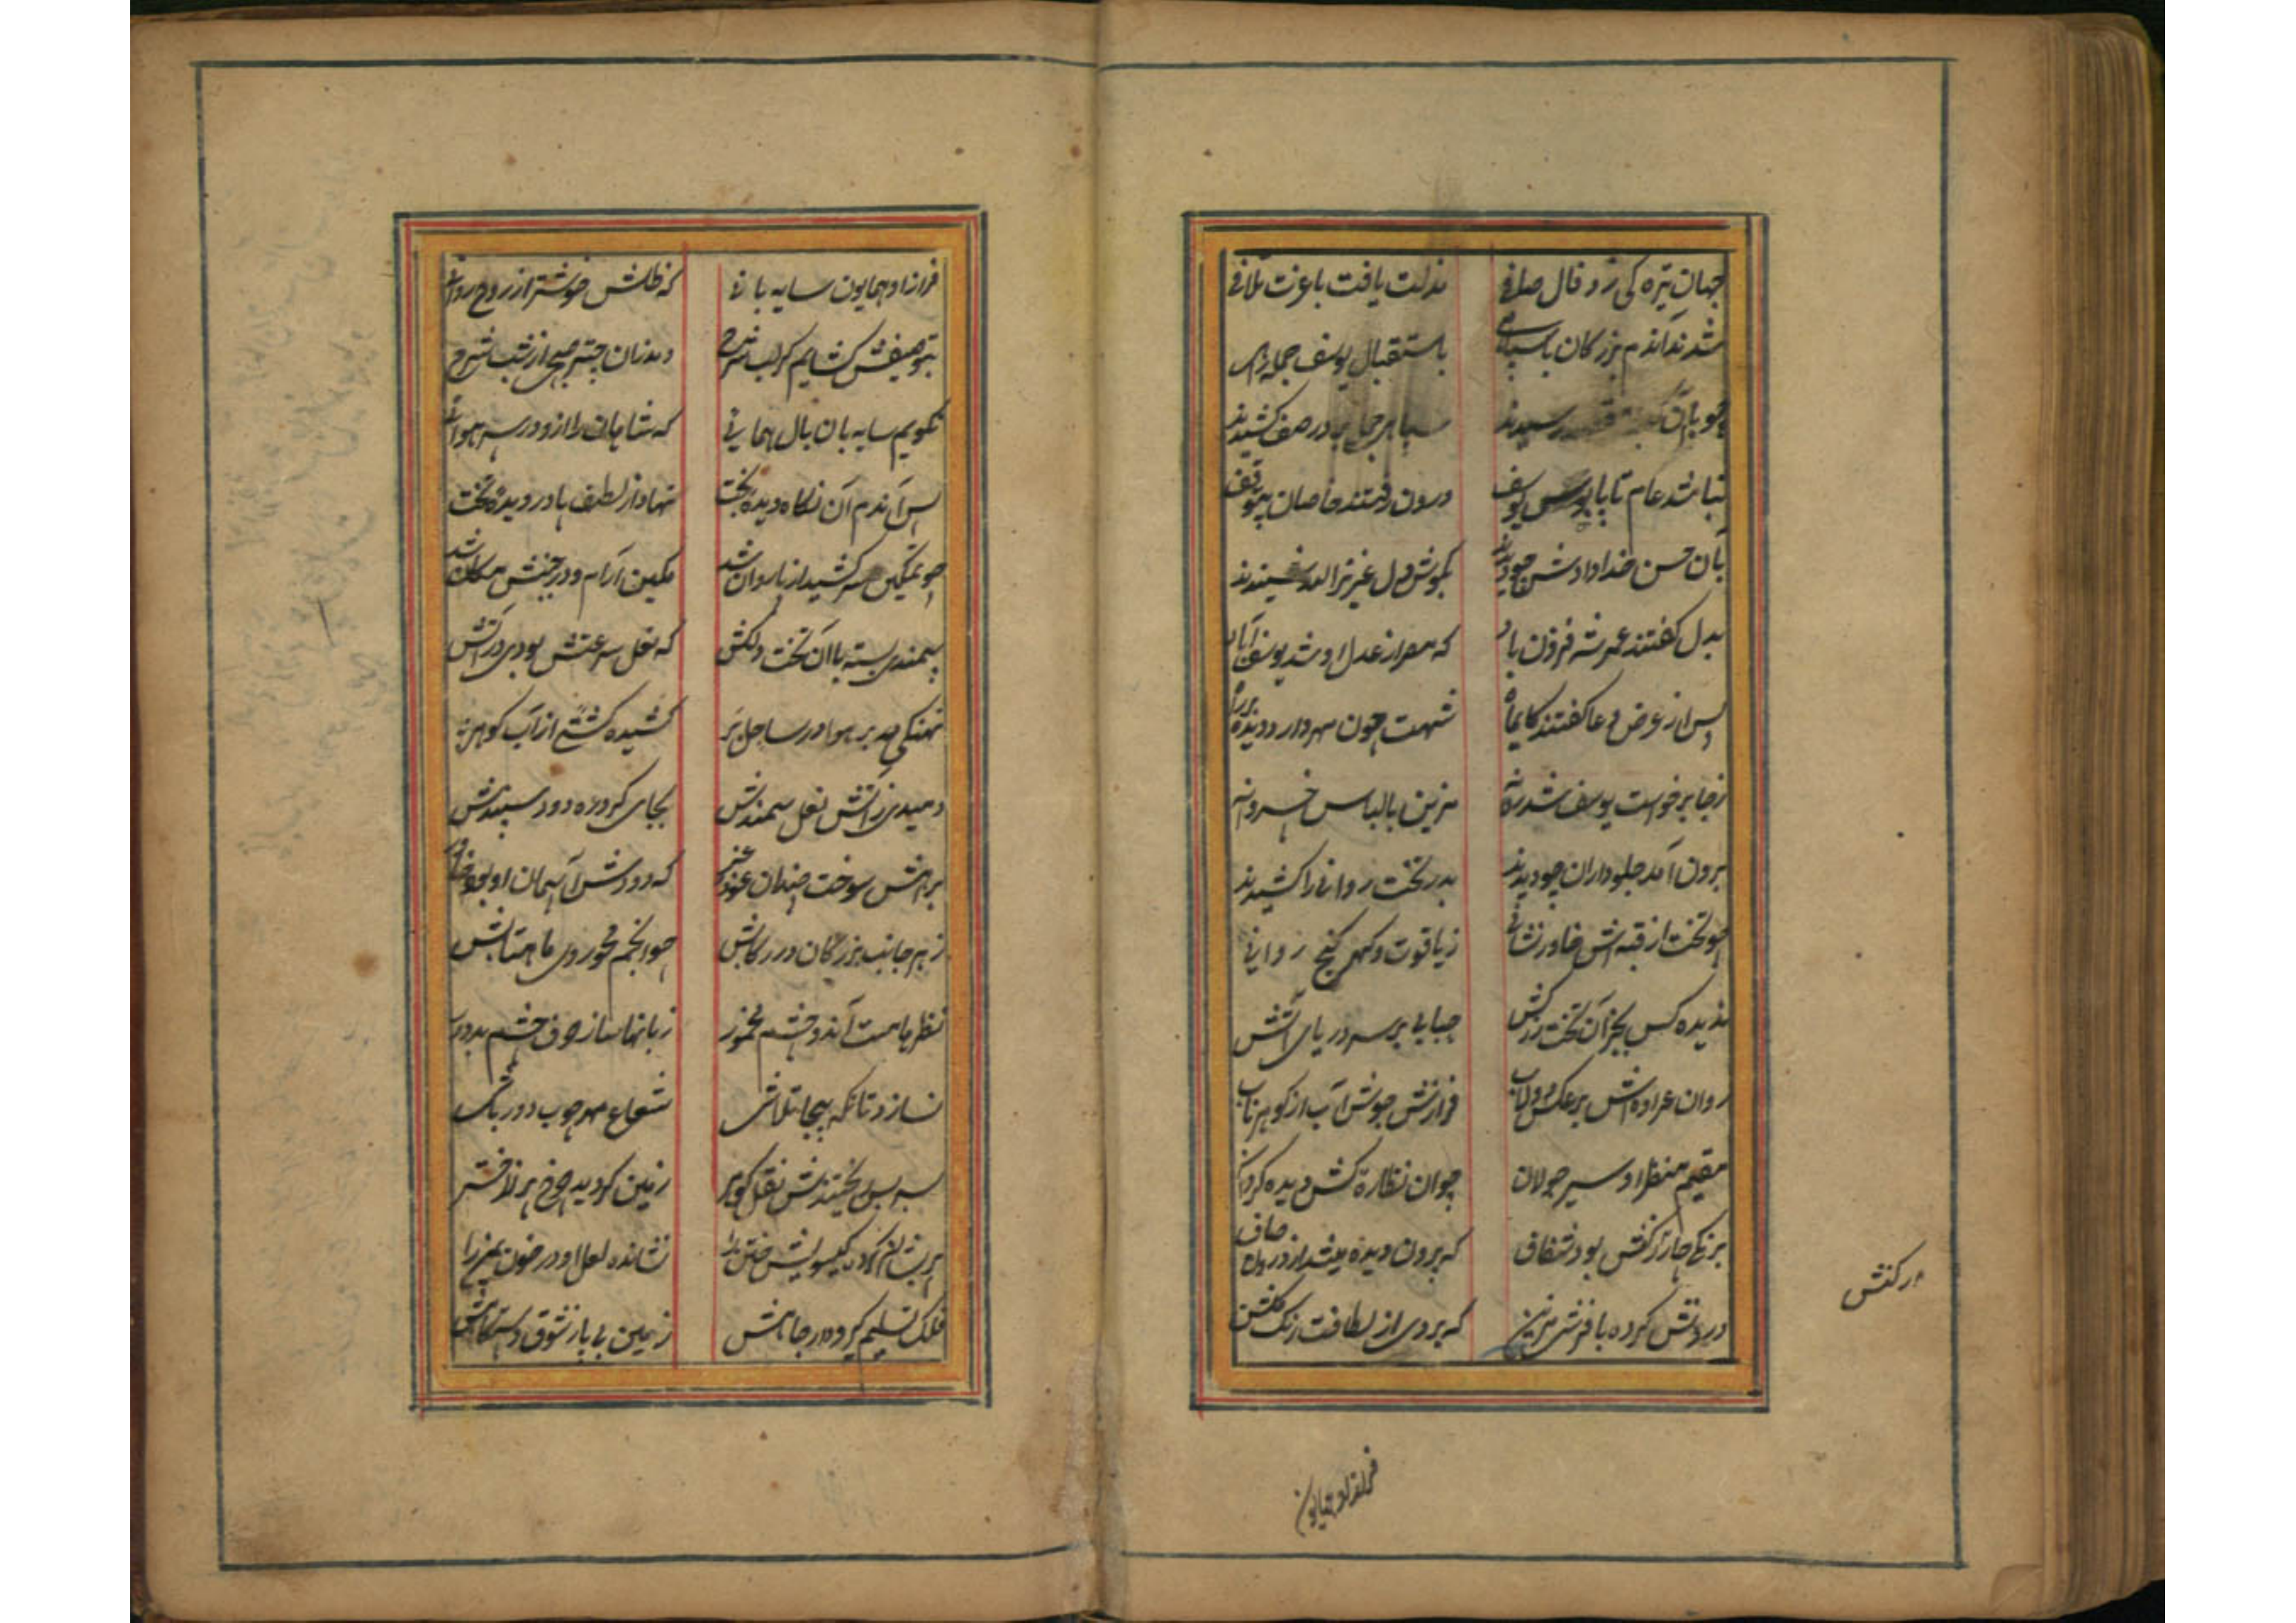 جهان تیره کی زد فال صافی    مذلت یافت با عزت تلافی
شدند آندم بزرگان با سپاهی    باستقبال یوسف جمله راهی
چو با آن رسیدند    سپاهی در صف کشیدند
نباشد عام تا پابوس یوسف    درون رفتند خاصان بیتوقف
بآن حسن خدادادش چو دیدند    عزیز
بدل گفتند عمر شه فزون باد    که مصر از عدل او شد یوسف آباد
پس از عرض دعا گفتند کایماه    شهت چون مهر دارد دیده بر راه
زجا برخواست یوسف شد روانه    مزین با لباس خسروانه
برون آمد جلوداران چو دیدند    بدر تخت روانی را کشیدند
چو تخت از قبه اش خاور نشانی    زیاقوت و گهر گنج روانی
ندیده کس بجز آن تخت زرکش    حبابی بر سر دریای آتش
روان عراده اش بر عکس دولاب    فرازش جوش آب از گوهر ناب
مقیم منظر او سیر جولان    چو آن نظاره کش دیده گردان
برنگی چار رکنش بود شفاف    که برون دیده میشد از درون صاف
درونش کرده با فرشی مزین    که بردی از لطافت رنگ گلشن
ار کنش
فراز او همایون
فراز او همایون سایه بانی    که ظلش خوشتر از روح روانی
بتوصیفش گشایم گر لب شرح    دمد زان چتر صبحی از شب
نگویم سایه بان بال همایی    که شاهان را ازو در سر هوایی
پس آندم آن نگاه دیده بخت    نهاد از لطف پا در دیده تخت
چو تمکین سرکشید از پا روان شد    مکین آرام و در جنبش مکان شد
سمندی بسته با آن تخت دلکش    که نعل سرعتش بودی در آتش
نهنگی بر هوا در ساحل بر    کشیده کشتی از آب گوهر
دمیدی ز آتش نعل سمندش    بجای گرد ره دود سپندش
براهش سوخت چندان عود عنبر    که دودش آسمان او بود
زهر جانب بزرگان در رکابش    چو انجم محو روی ماهتابش
نظرها مست آندو چشم مخمور    زبانها ساز حرف چشم بد دور
نسازد تا نگه بیجا تلاشی    شعاع مهر چوب دورباشی
بسر بس ریختندش نقل گوهر    زمین گردید چرخ پر ز اختر
پریشان کرده گیسویش ختن را    نشانده لعل او در خون یمن را
فلک تسلیم کرده در جنابش    زمین بی پا ز شوق